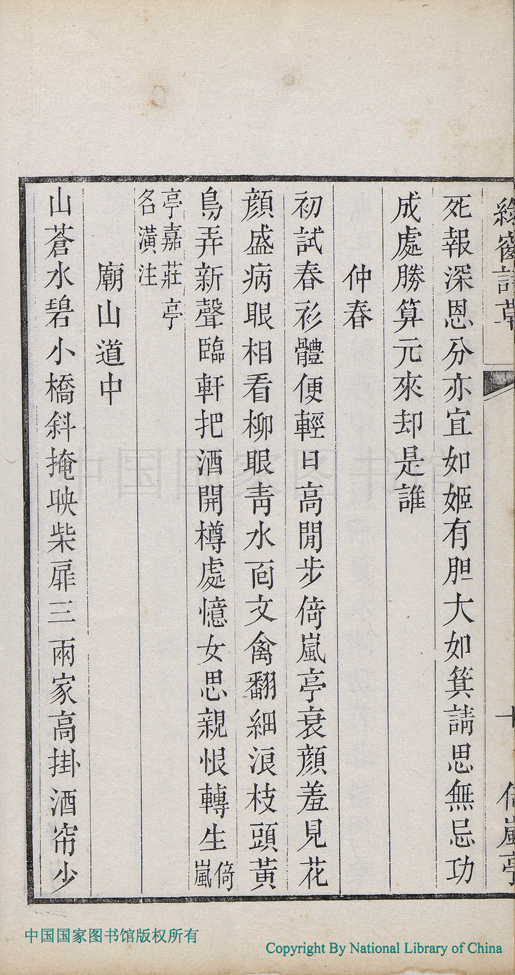 綠窗詩草
十
倚嵐亭
死報深恩分亦宜如姬有胆大如箕請思無忌功
成處勝算元來却是誰
仲春
初試春衫體便輕日高閒步倚嵐亭衰顔羞見花
顔盛病眼相看柳眼靑水面文禽翻細浪枝頭黃
鳥弄新聲臨軒把酒開樽處憶女思親恨轉生倚嵐
亭嘉莊亭
名潢注
廟山道中
山蒼水碧小橋斜掩映柴扉三兩家高掛酒帘少
中国国家图书馆
中国国家图书馆版权所有
Copyright By National Library of China